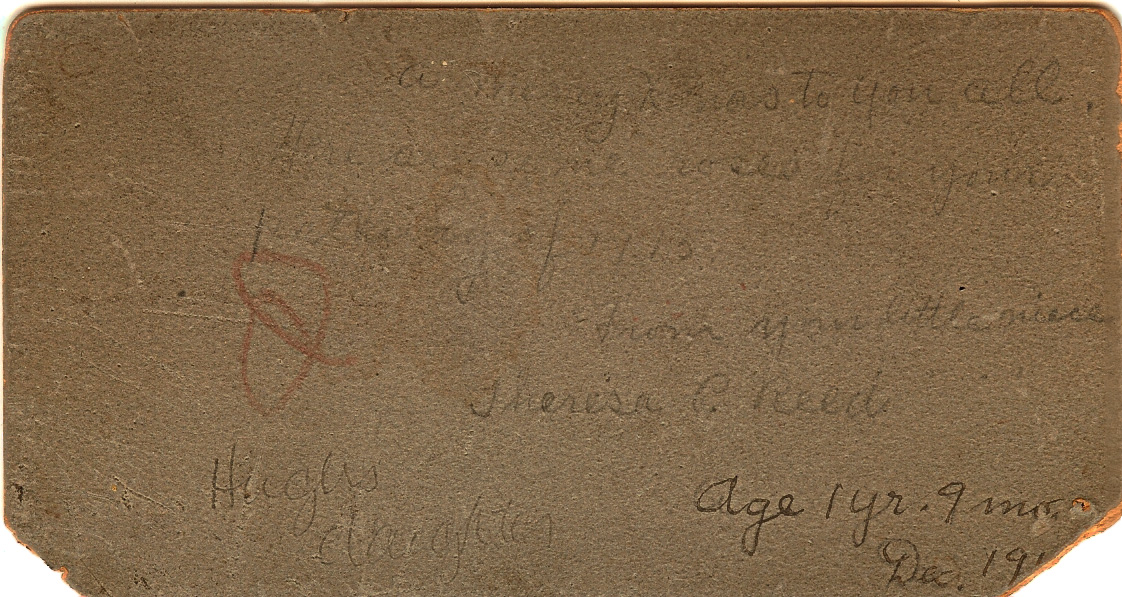 A Merry Xmas to you all.
Here are some roses for your
from your little niece
Theresa C. Reed
Hughs
daughter
Age 1 yr. 9 mo.
Dec. 191